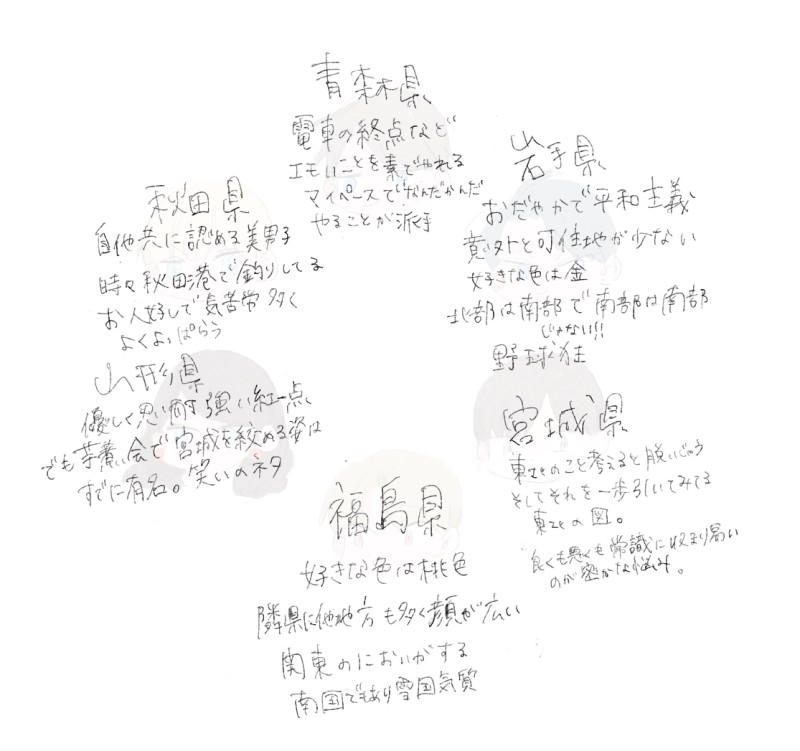 青森県
電車の終点など
エモいことを素でやれる
マイペースでなんだかんだ
やることが派手
岩手県
おだやかで平和主義
意外と可住地が少ない
好きな色は金
北部は南部で南部は南部
じゃない!!
野球狂
秋田県
自他共に認める美男子
時々秋田港で釣りしてる
お人好しで気苦労多く
よくよっぱらう
山形県
優しく思い耐強い紅一点、
でも芋煮会で宮城を絞める姿は
すでに有名。笑いのネタ
宮城県
のこと考えると脱いじゃう
そしてそれを一歩引いてみてる
の図。
良くも悪くも常識に収まり易い
のが密かな悩み。
福島県
好きな色は桃色
隣県に他地方も多く顔が広い
関東のにおいがする
南国でもあり雪国気質